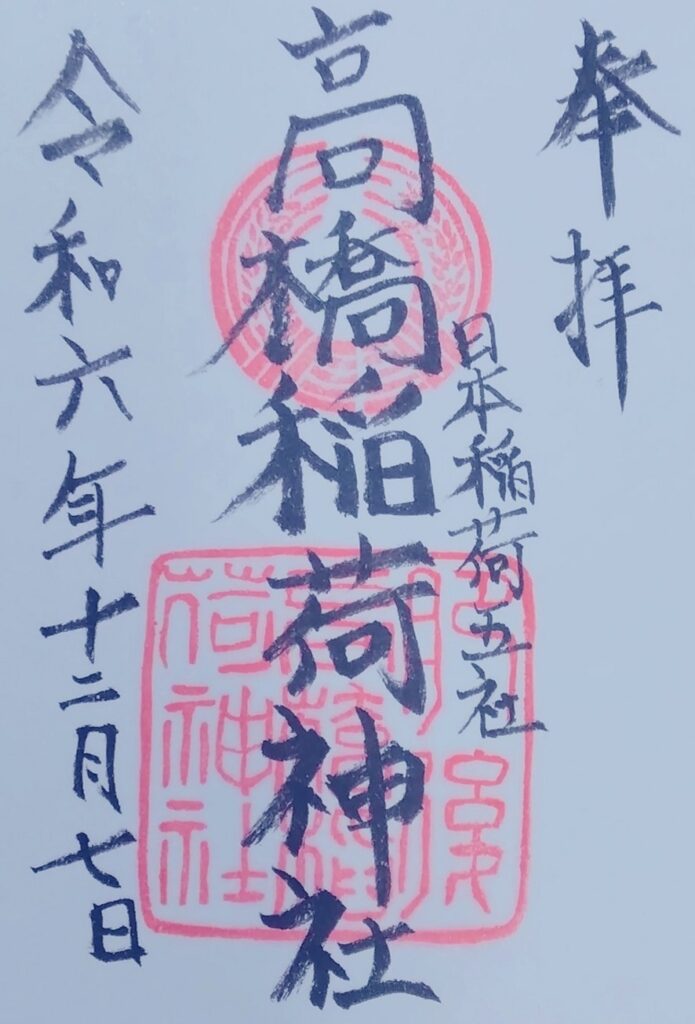 奉拝
日本稲荷五社
高橋稲荷神社
令和六年十二月七日